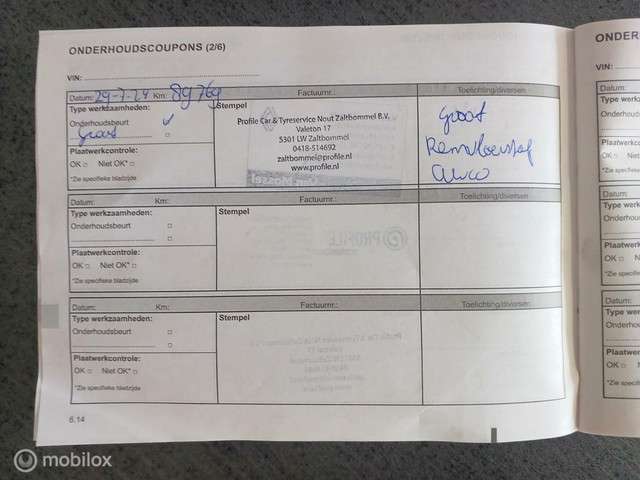 ONDERHOUDSCOUPONS (2/6)
ONDER
VIN:
VIN:
Datum: 29-7-24 Km: 89769 Factuurnr.: Toelichting/diversen:
Type werkzaamheden: Stempel
Onderhoudsbeurt
Groot
Profile Car & Tyreservice Nout Zaltbommel B.V.
Valeton 17
5301 LW Zaltbommel
0418-514692
zaltbommel@profile.nl
www.profile.nl
Groot
Remvloeistof
airco
Plaatwerkcontrole:
OK Niet OK*)
*Zie specifieke bladzijde
Datum: Km: Factuurnr.: Toelichting/diversen:
Type werkzaamheden: Stempel
Onderhoudsbeurt
Plaatwerkcontrole:
OK Niet OK*)
*Zie specifieke bladzijde
PROFILE
Datum: Km: Factuurnr.: Toelichting/diversen:
Type werkzaamheden: Stempel
Onderhoudsbeurt
Plaatwerkcontrole:
OK Niet OK*)
*Zie specifieke bladzijde
6.14
mobilox